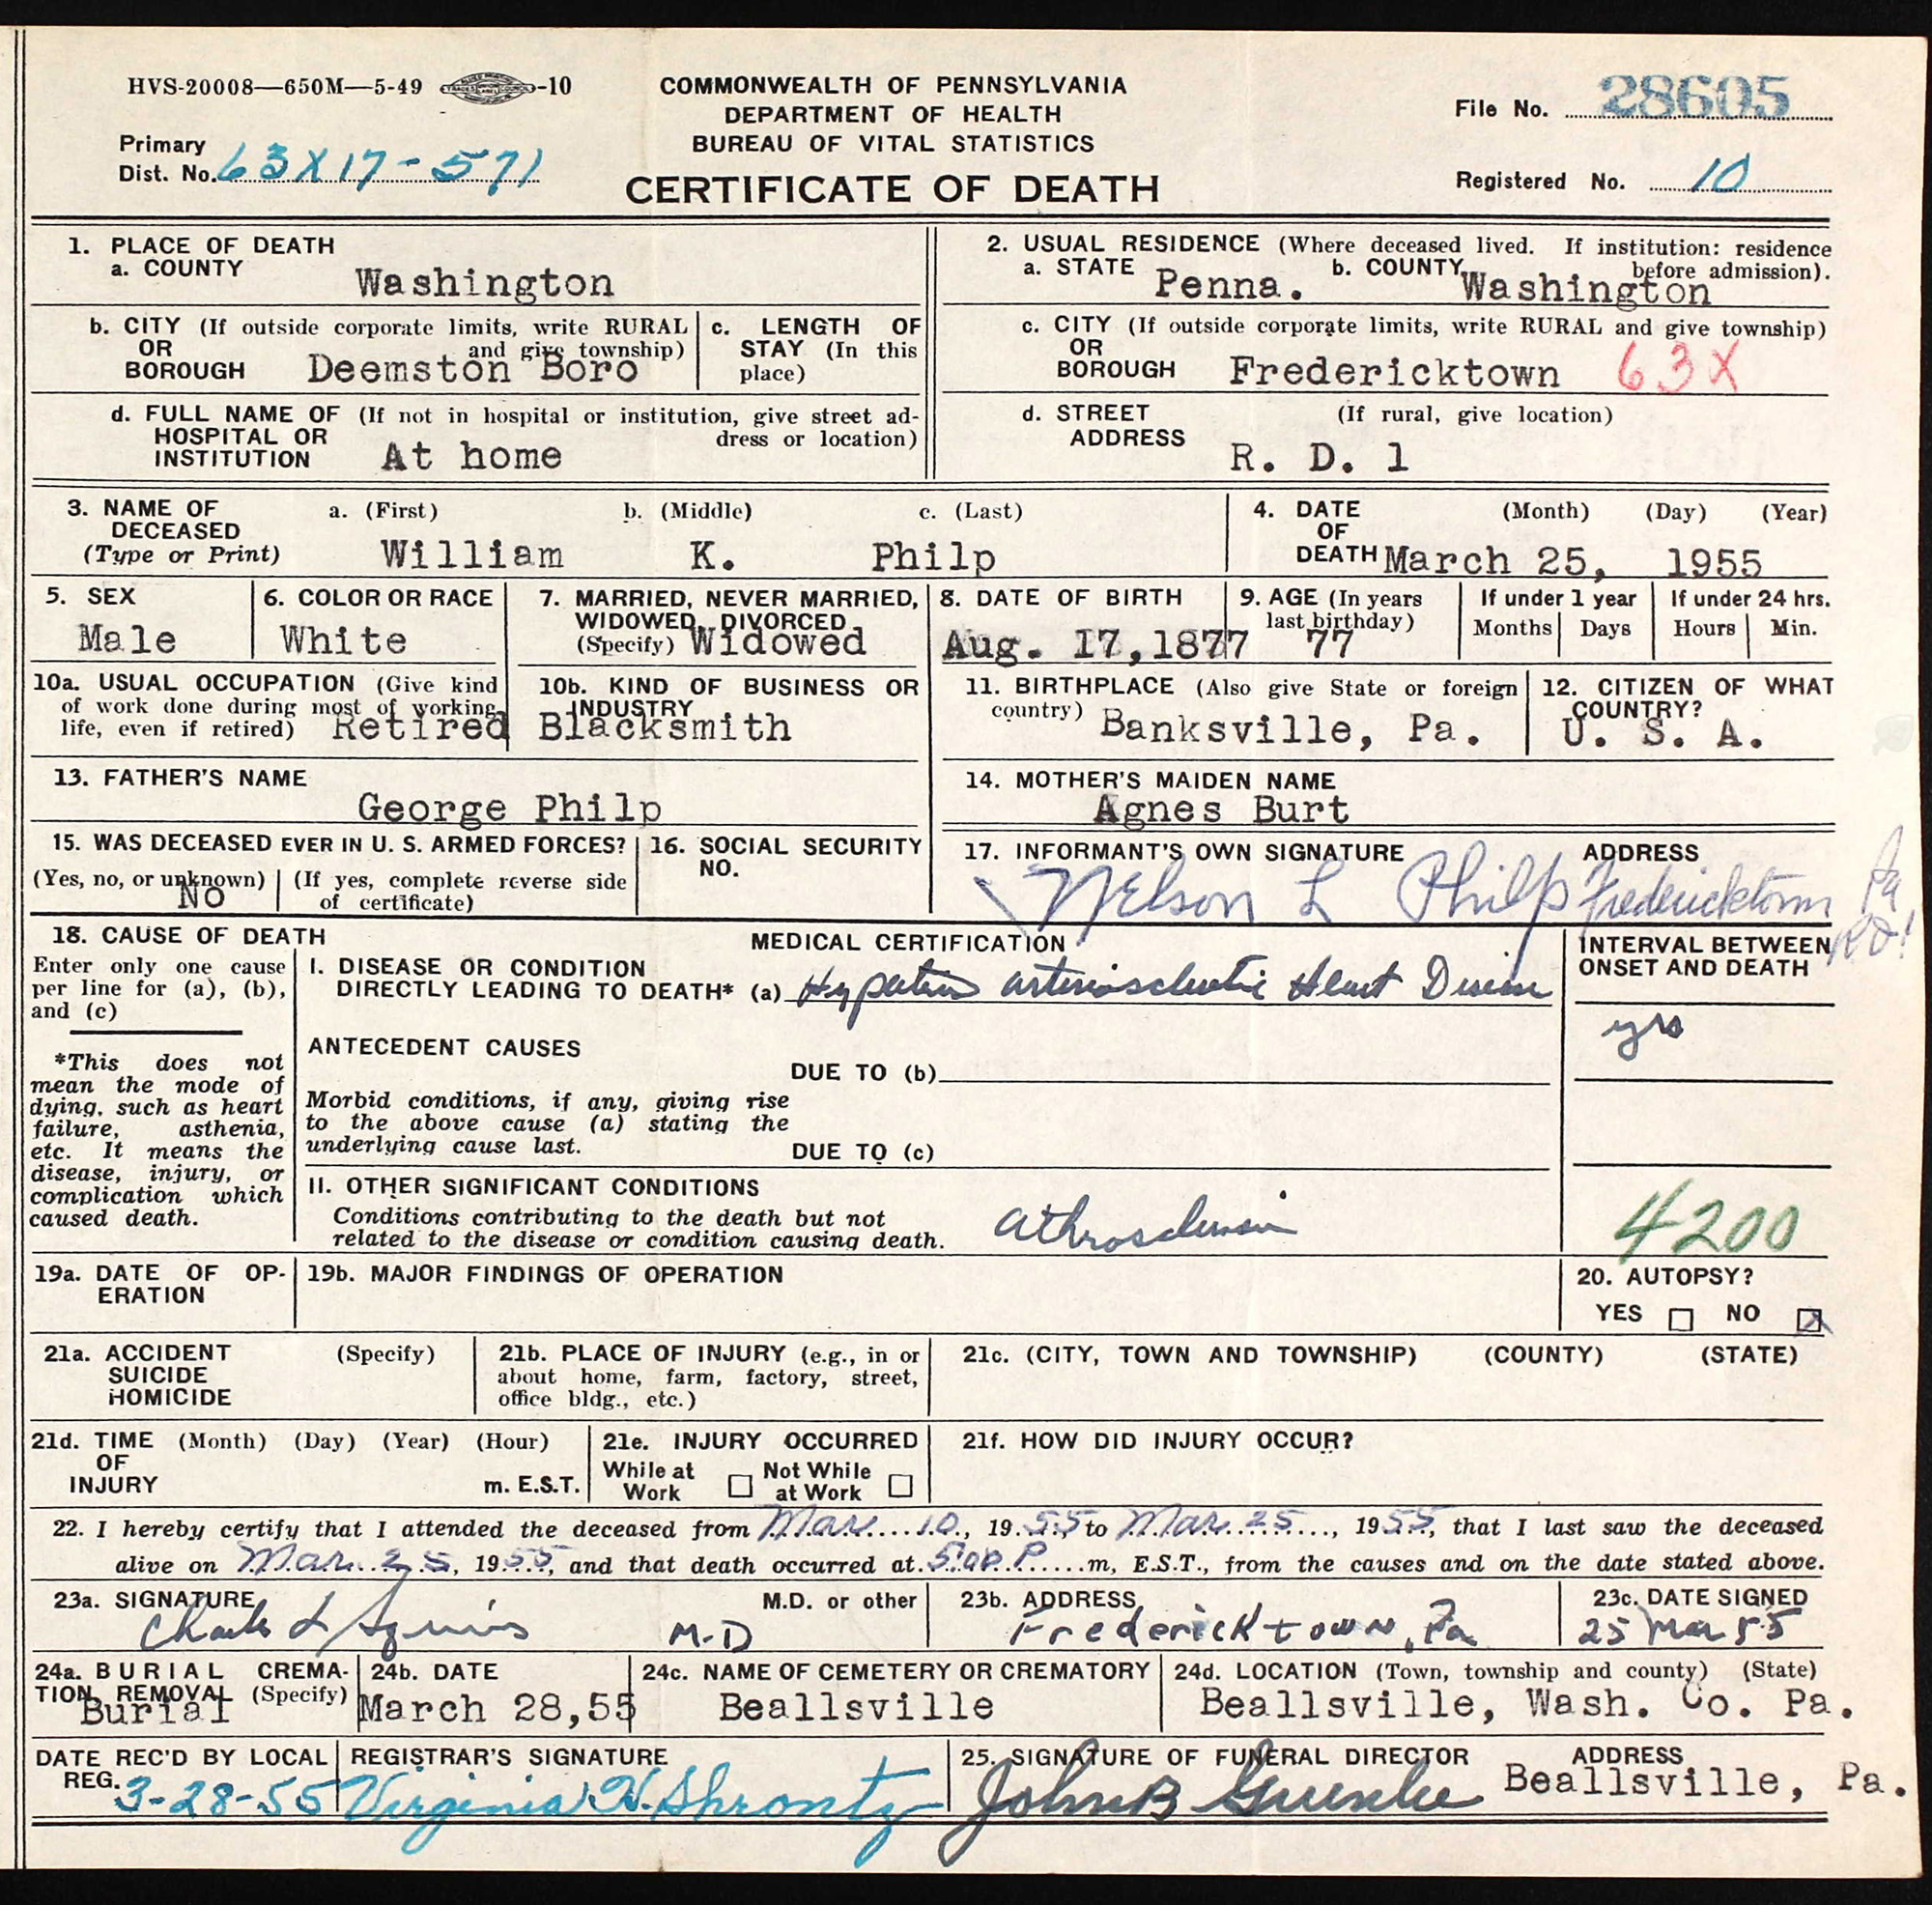 HVS-20008—650M—5-49 -10
COMMONWEALTH OF PENNSYLVANIA
DEPARTMENT OF HEALTH
BUREAU OF VITAL STATISTICS
CERTIFICATE OF DEATH
File No. 28605
Primary
Dist. No. 63X17-571
Registered No. 10
1. PLACE OF DEATH
a. COUNTY
Washington
2. USUAL RESIDENCE (Where deceased lived. If institution: residence
before admission).
a. STATE Penna. b. COUNTY Washington
b. CITY (If outside corporate limits, write RURAL
OR and give township)
BOROUGH Deemston Boro
c. LENGTH OF
STAY (In this
place)
c. CITY (If outside corporate limits, write RURAL and give township)
OR
BOROUGH Fredericktown 63X
d. FULL NAME OF (If not in hospital or institution, give street ad-
HOSPITAL OR dress or location)
INSTITUTION At home
d. STREET (If rural, give location)
ADDRESS
R. D. 1
3. NAME OF a. (First) b. (Middle) c. (Last)
DECEASED
(Type or Print) William K. Philp
4. DATE (Month) (Day) (Year)
OF
DEATH March 25, 1955
5. SEX
Male
6. COLOR OR RACE
White
7. MARRIED, NEVER MARRIED,
WIDOWED, DIVORCED
(Specify) Widowed
8. DATE OF BIRTH
Aug. 17, 1877
9. AGE (In years
last birthday)
77
If under 1 year
Months Days
If under 24 hrs.
Hours Min.
10a. USUAL OCCUPATION (Give kind
of work done during most of working
life, even if retired) Retired
10b. KIND OF BUSINESS OR
INDUSTRY
Blacksmith
11. BIRTHPLACE (Also give State or foreign
country) Banksville, Pa.
12. CITIZEN OF WHAT
COUNTRY?
U. S. A.
13. FATHER'S NAME
George Philp
14. MOTHER'S MAIDEN NAME
Agnes Burt
15. WAS DECEASED EVER IN U. S. ARMED FORCES?
(Yes, no, or unknown) (If yes, complete reverse side
No of certificate)
16. SOCIAL SECURITY
NO.
17. INFORMANT'S OWN SIGNATURE ADDRESS
Nelson L Philp Fredericktown Pa
RD1
18. CAUSE OF DEATH
Enter only one cause
per line for (a), (b),
and (c)
*This does not
mean the mode of
dying, such as heart
failure, asthenia,
etc. It means the
disease, injury, or
complication which
caused death.
MEDICAL CERTIFICATION
I. DISEASE OR CONDITION
DIRECTLY LEADING TO DEATH* (a) arteriosclerotic Heart Disease
ANTECEDENT CAUSES
DUE TO (b)
Morbid conditions, if any, giving rise
to the above cause (a) stating the
underlying cause last.
DUE TO (c)
INTERVAL BETWEEN
ONSET AND DEATH
yrs
II. OTHER SIGNIFICANT CONDITIONS
Conditions contributing to the death but not
related to the disease or condition causing death.
4200
19a. DATE OF OP-
ERATION
19b. MAJOR FINDINGS OF OPERATION
20. AUTOPSY?
YES NO X
21a. ACCIDENT (Specify)
SUICIDE
HOMICIDE
21b. PLACE OF INJURY (e.g., in or
about home, farm, factory, street,
office bldg., etc.)
21c. (CITY, TOWN AND TOWNSHIP) (COUNTY) (STATE)
21d. TIME (Month) (Day) (Year) (Hour)
OF
INJURY m. E.S.T.
21e. INJURY OCCURRED
While at Not While
Work at Work
21f. HOW DID INJURY OCCUR?
22. I hereby certify that I attended the deceased from Mar. 10, 1955 to Mar. 25, 1955, that I last saw the deceased
alive on Mar. 25, 1955, and that death occurred at 5:00 P. m, E.S.T., from the causes and on the date stated above.
23a. SIGNATURE M.D. or other
Charles L M.D
23b. ADDRESS
Fredericktown, Pa
23c. DATE SIGNED
25 Mar 55
24a. BURIAL CREMA-
TION, REMOVAL (Specify)
Burial
24b. DATE
March 28,55
24c. NAME OF CEMETERY OR CREMATORY
Beallsville
24d. LOCATION (Town, township and county) (State)
Beallsville, Wash. Co. Pa.
DATE REC'D BY LOCAL
REG. 3-28-55
REGISTRAR'S SIGNATURE
Virginia H. Shrontz
25. SIGNATURE OF FUNERAL DIRECTOR ADDRESS
John B Greenlee Beallsville, Pa.